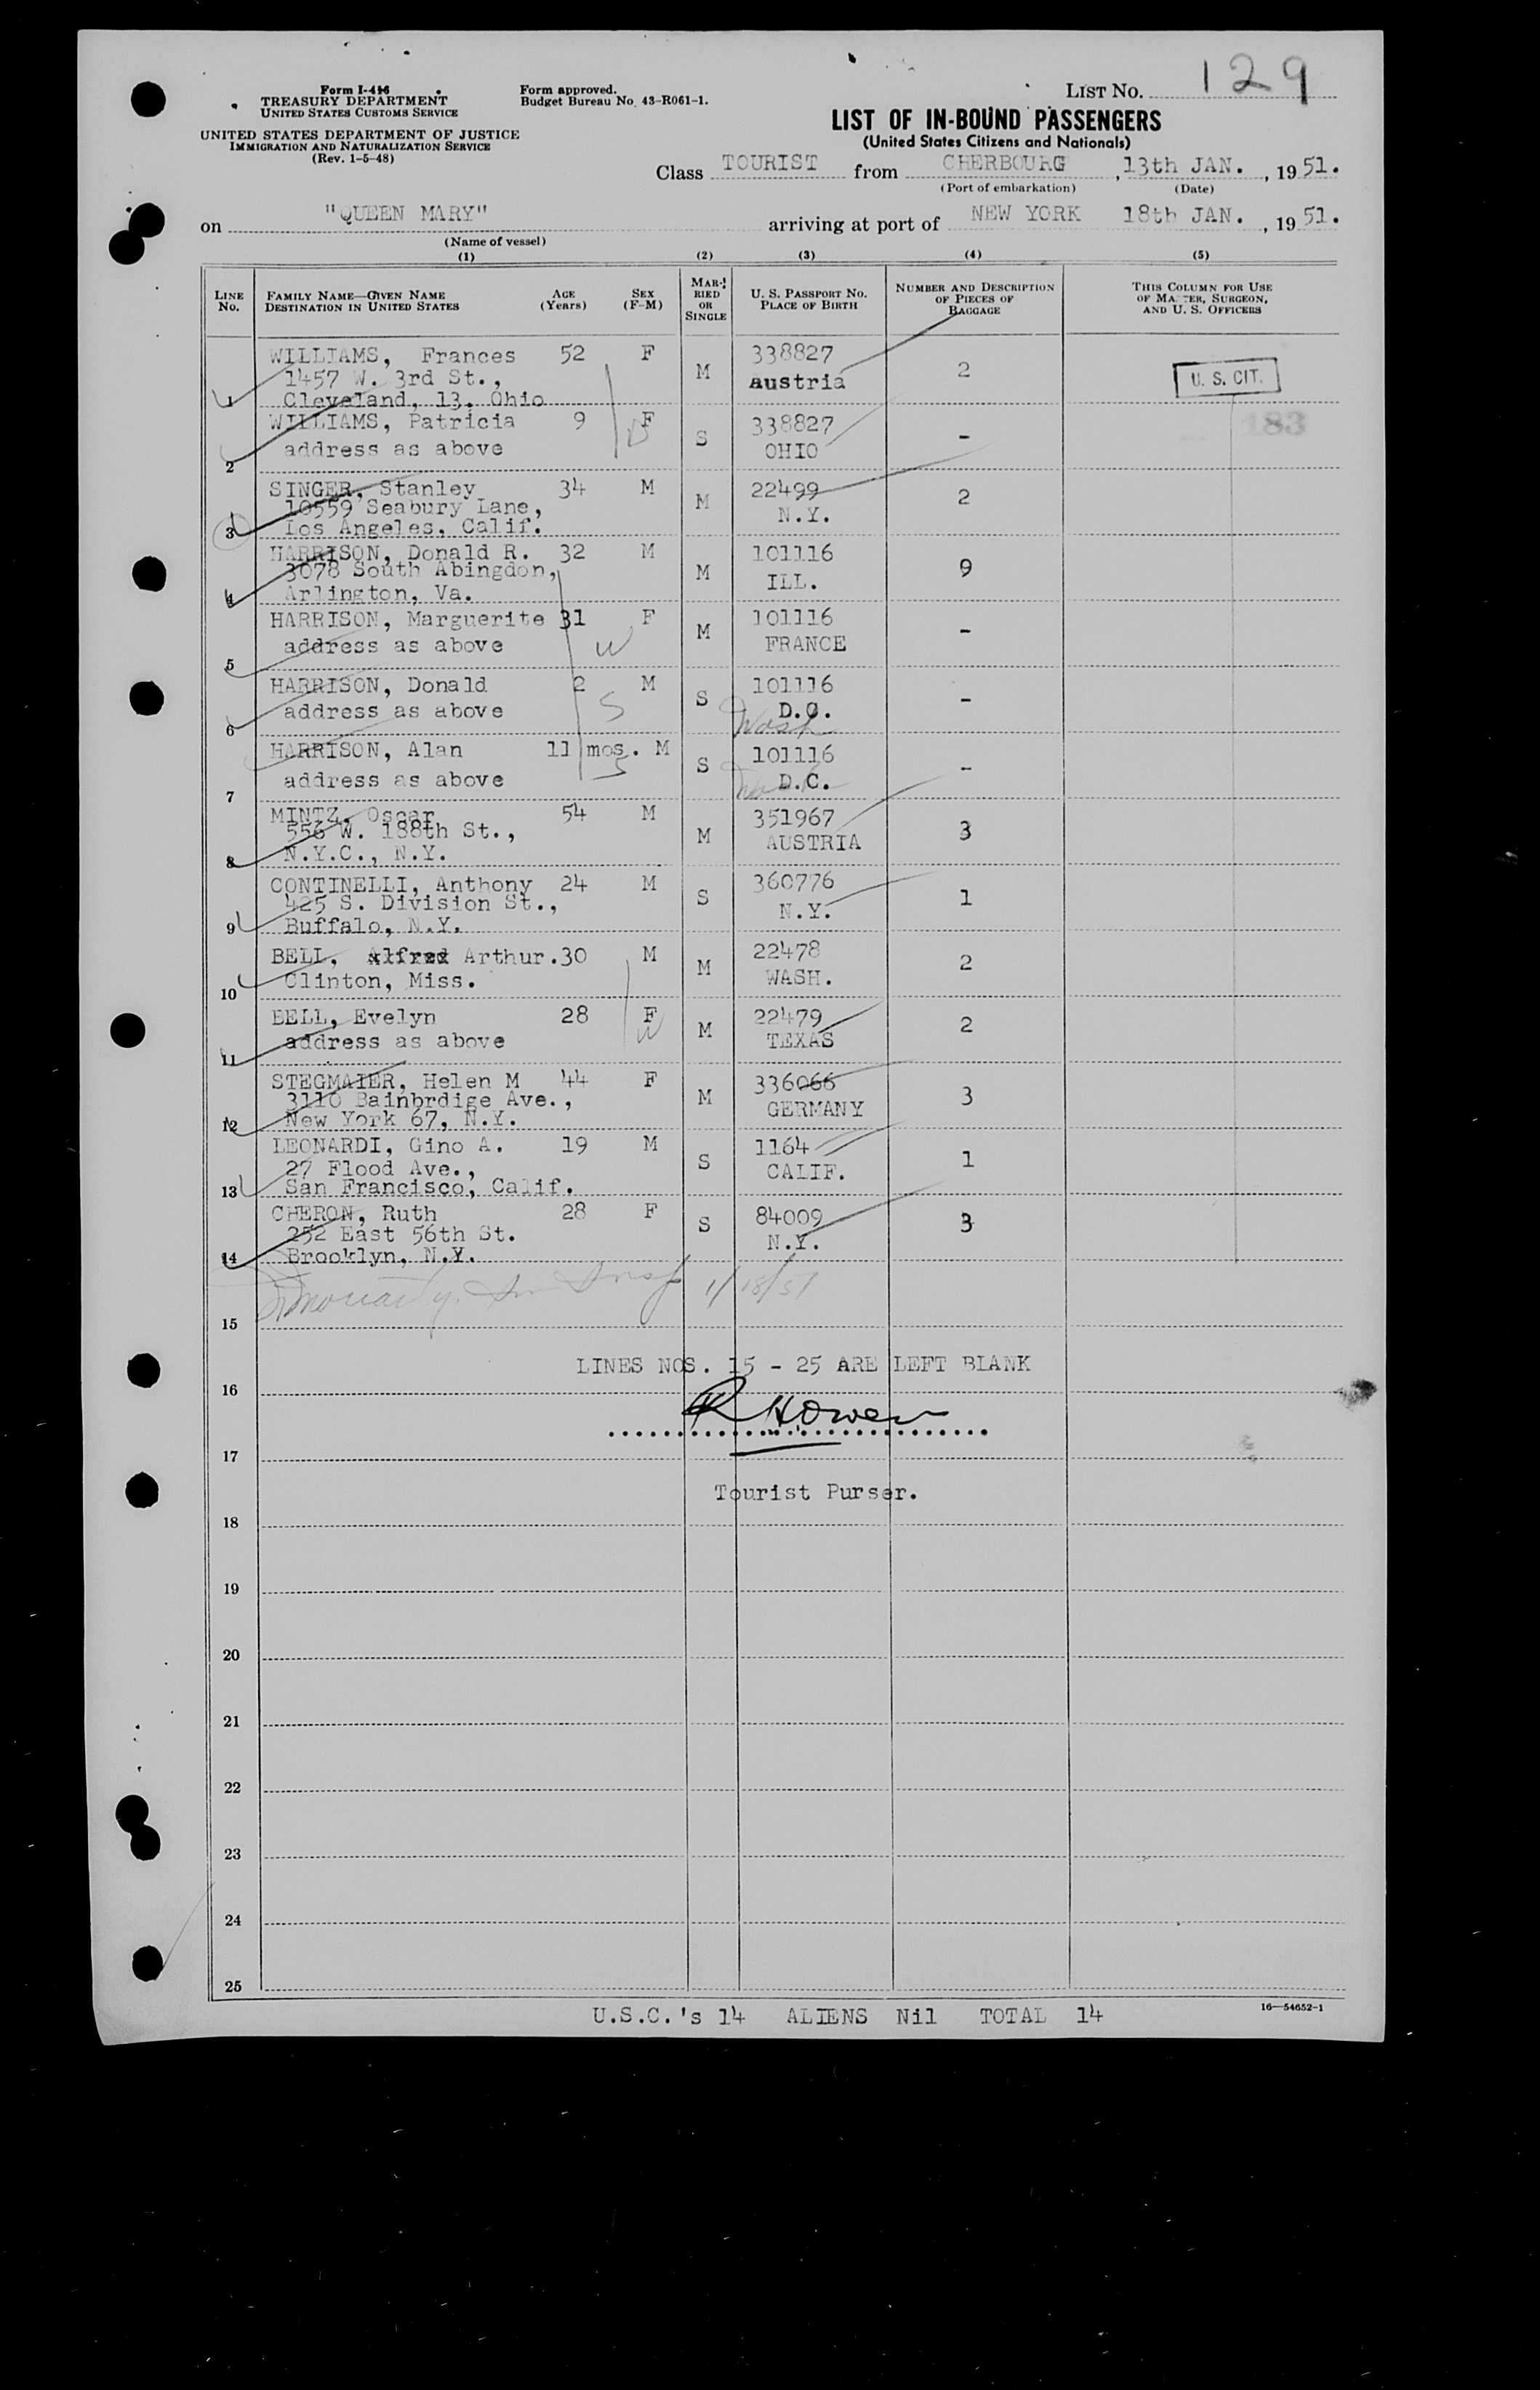 Form I-416
TREASURY DEPARTMENT
UNITED STATES CUSTOMS SERVICE
UNITED STATES DEPARTMENT OF JUSTICE
IMMIGRATION AND NATURALIZATION SERVICE
(Rev. 1-5-48)
Form approved.
Budget Bureau No. 43-R061-1.
LIST NO. 129
LIST OF IN-BOUND PASSENGERS
(United States Citizens and Nationals)
Class TOURIST from CHERBOURG, 13th JAN., 1951.
(Port of embarkation) (Date)
on "QUEEN MARY" arriving at port of NEW YORK 18th JAN., 1951.
(Name of vessel)
(1) (2) (3) (4) (5)
LINE NO. FAMILY NAME—GIVEN NAME DESTINATION IN UNITED STATES AGE (Years) SEX (F-M) MARRIED OR SINGLE U. S. PASSPORT NO. PLACE OF BIRTH NUMBER AND DESCRIPTION OF PIECES OF BAGGAGE THIS COLUMN FOR USE OF MASTER, SURGEON, AND U. S. OFFICERS
WILLIAMS, Frances 52 F M 338827 2 U. S. CIT.
1457 W. 3rd St., austria
1 Cleveland, 13, Ohio
WILLIAMS, Patricia 9 F S 338827 - 183
2 address as above OHIO
SINGER, Stanley 34 M M 22499 2
10559 Seabury Lane, N.Y.
3 Los Angeles, Calif.
HARRISON, Donald R. 32 M M 101116 9
3078 South Abingdon, ILL.
4 Arlington, Va.
HARRISON, Marguerite 31 F M 101116 -
5 address as above W FRANCE
HARRISON, Donald 2 M S 101116 -
6 address as above S D.C. Wash
HARRISON, Alan 11 mos. M S 101116 -
7 address as above S D.C.
MINTZ, Oscar 54 M M 351967 3
556 W. 188th St., AUSTRIA
8 N.Y.C., N.Y.
CONTINELLI, Anthony 24 M S 360776 1
425 S. Division St., N.Y.
9 Buffalo, N.Y.
BELL, Alfred Arthur. 30 M M 22478 2
10 Clinton, Miss. WASH.
BELL, Evelyn 28 F M 22479 2
11 address as above W TEXAS
STEGMAIER, Helen M 44 F M 336066 3
3110 Bainbrdige Ave., GERMANY
12 New York 67, N.Y.
LEONARDI, Gino A. 19 M S 1164 1
27 Flood Ave., CALIF.
13 San Francisco, Calif.
CHERON, Ruth 28 F S 84009 3
252 East 56th St. N.Y.
14 Brooklyn, N.Y.
Moriarty Insp 1/18/51
15
LINES NOS. 15 - 25 ARE LEFT BLANK
16
R H Owen
17
Tourist Purser.
18
19
20
21
22
23
24
25
U.S.C.'s 14 ALIENS Nil TOTAL 14
16—54652-1